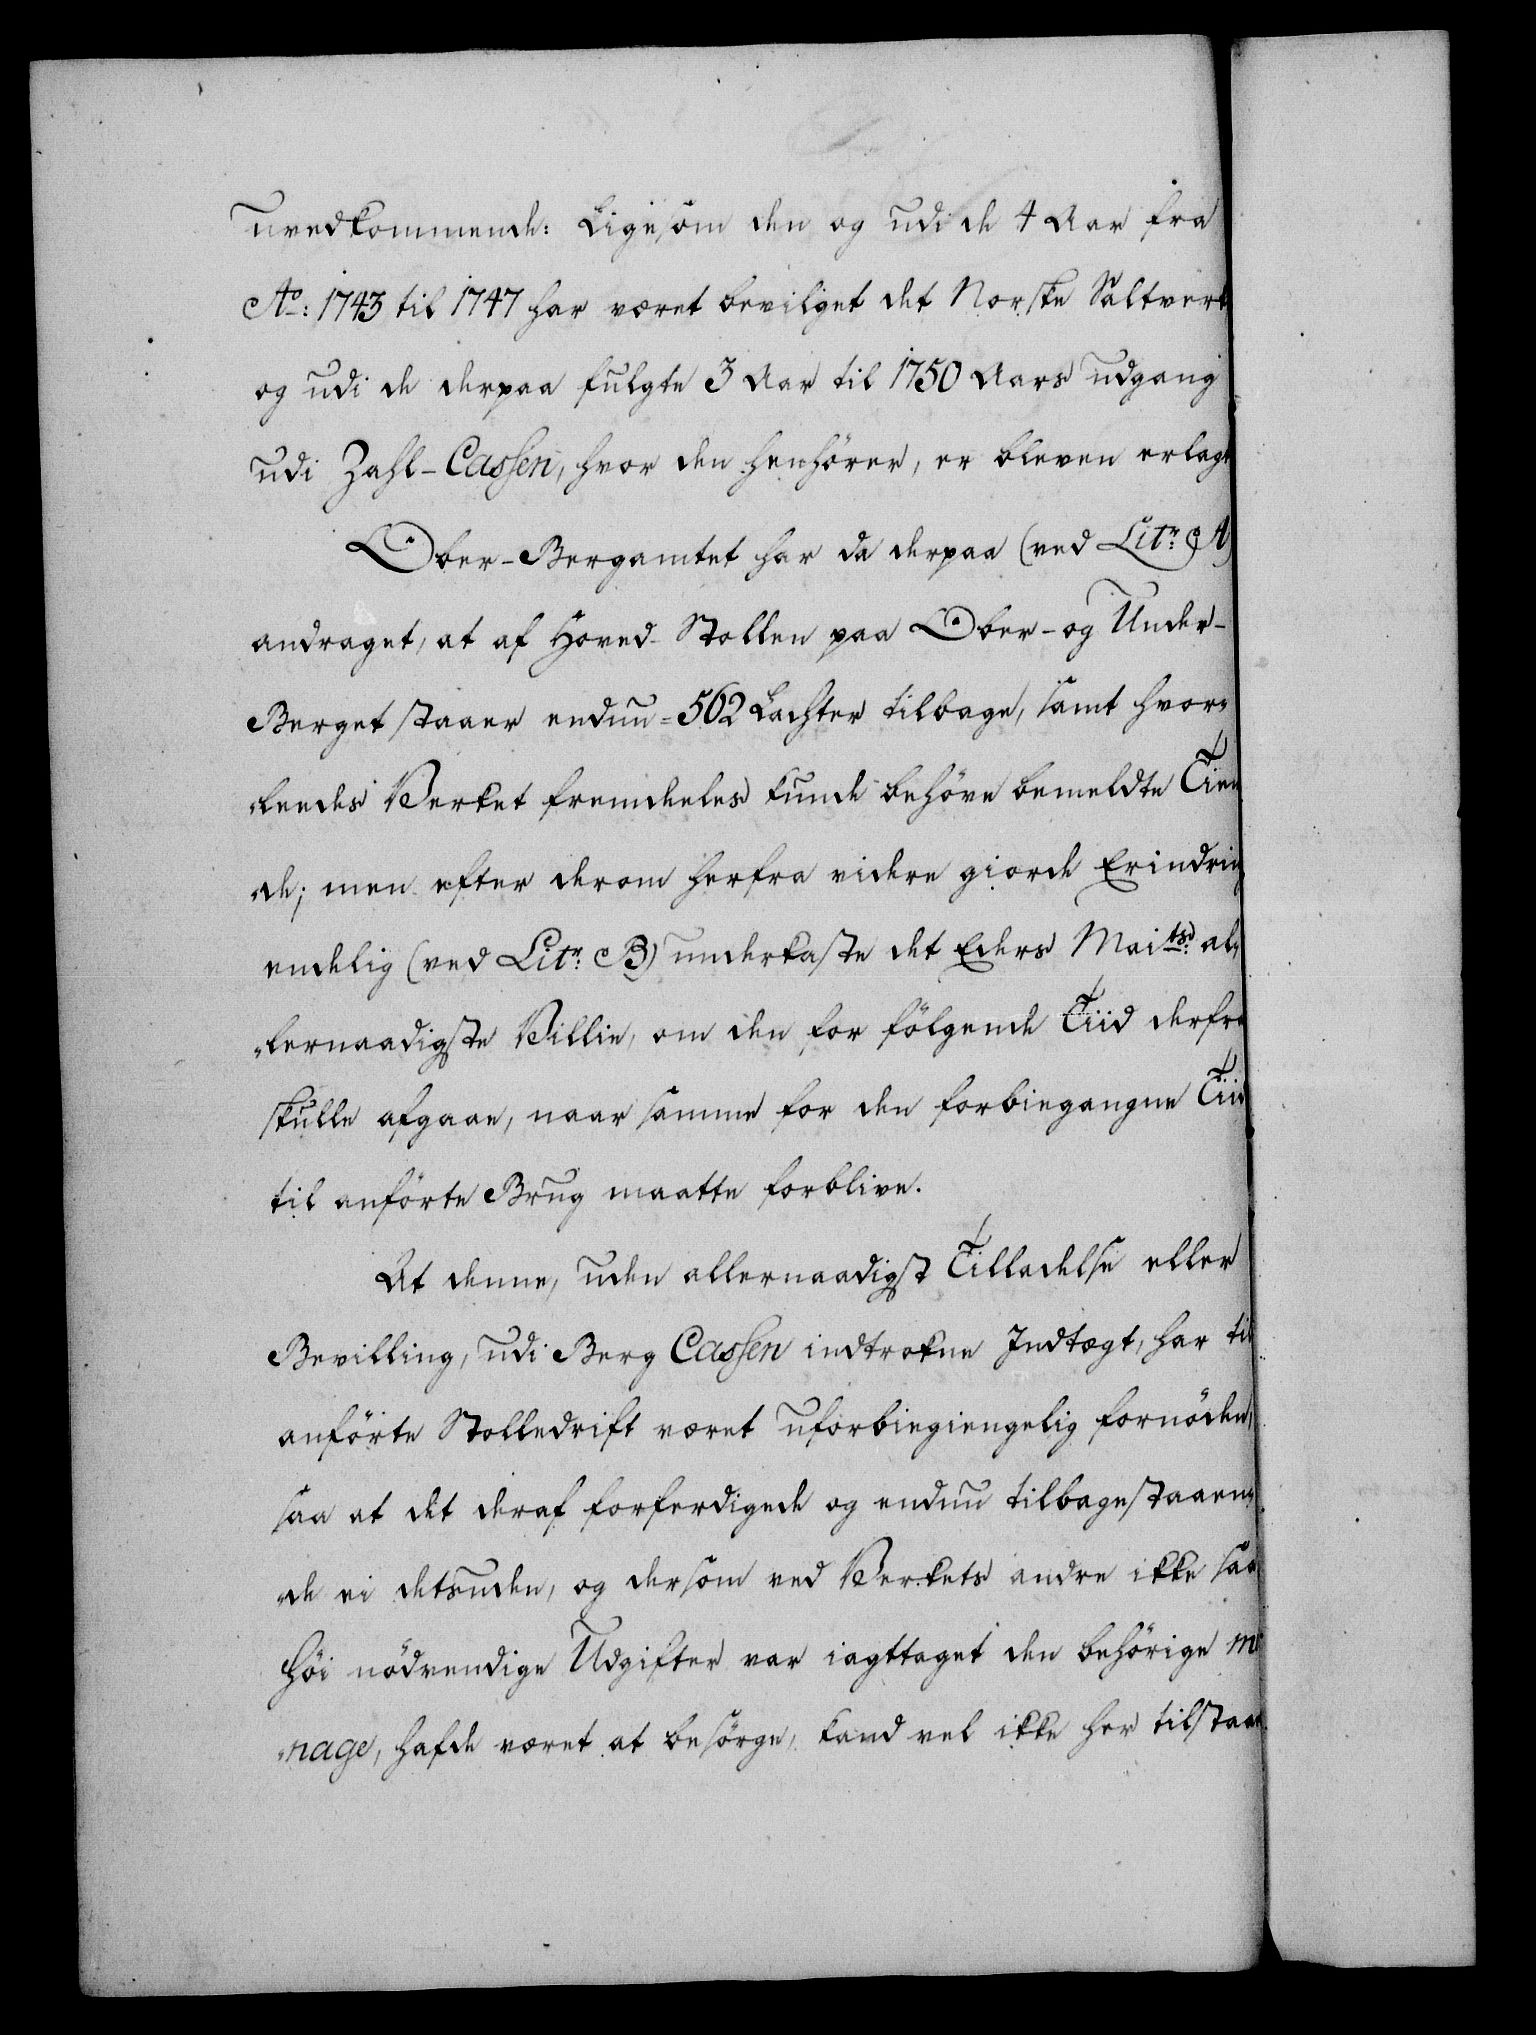 uvedkommende: Ligesom den og udi de 4 Aar fra
Ao: 1743 til 1747 har været bevilget det Norske Saltverk
og udi de derpaa fulgte 3 Aar til 1750 Aars udgang
udi Zahl-Cassen, hvor den henhörer, er bleven erlagt
Ober-Bergamtet har da derpaa (ved Litr: A)
andraget, at af Hoved-Stollen paa Ober- og Under-
Berget staaer endnu = 562 Lachter tilbage, samt hvor„
„leedes Verket fremdeeles kunde behöve bemeldte Tien
„de; men efter derom herfra videre giorde Erindring
endelig (ved Litr: B) underkaste det Eders Maits: al„
„lernaadigste Villie, om den for fölgende Tiid derfra
skulle afgaae, naar samme for den forbiegangne Tiid
til anförte Brug maatte forblive.
At denne, uden allernaadigst Tilladelse eller
Bevilling, udi Berg Cassen indtrokne Indtægt, har til
anförte Stolledrift været uforbiegiengelig fornöden,
saa at det deraf forferdigede og endnu tilbagestaaen„
„de ei desuden, og dersom ved Verkets andre ikke saa
höi nödvendige Udgifter var iagttaget den behörige me
„nage, hafde været at besörge, kand vel ikke her tilstaae